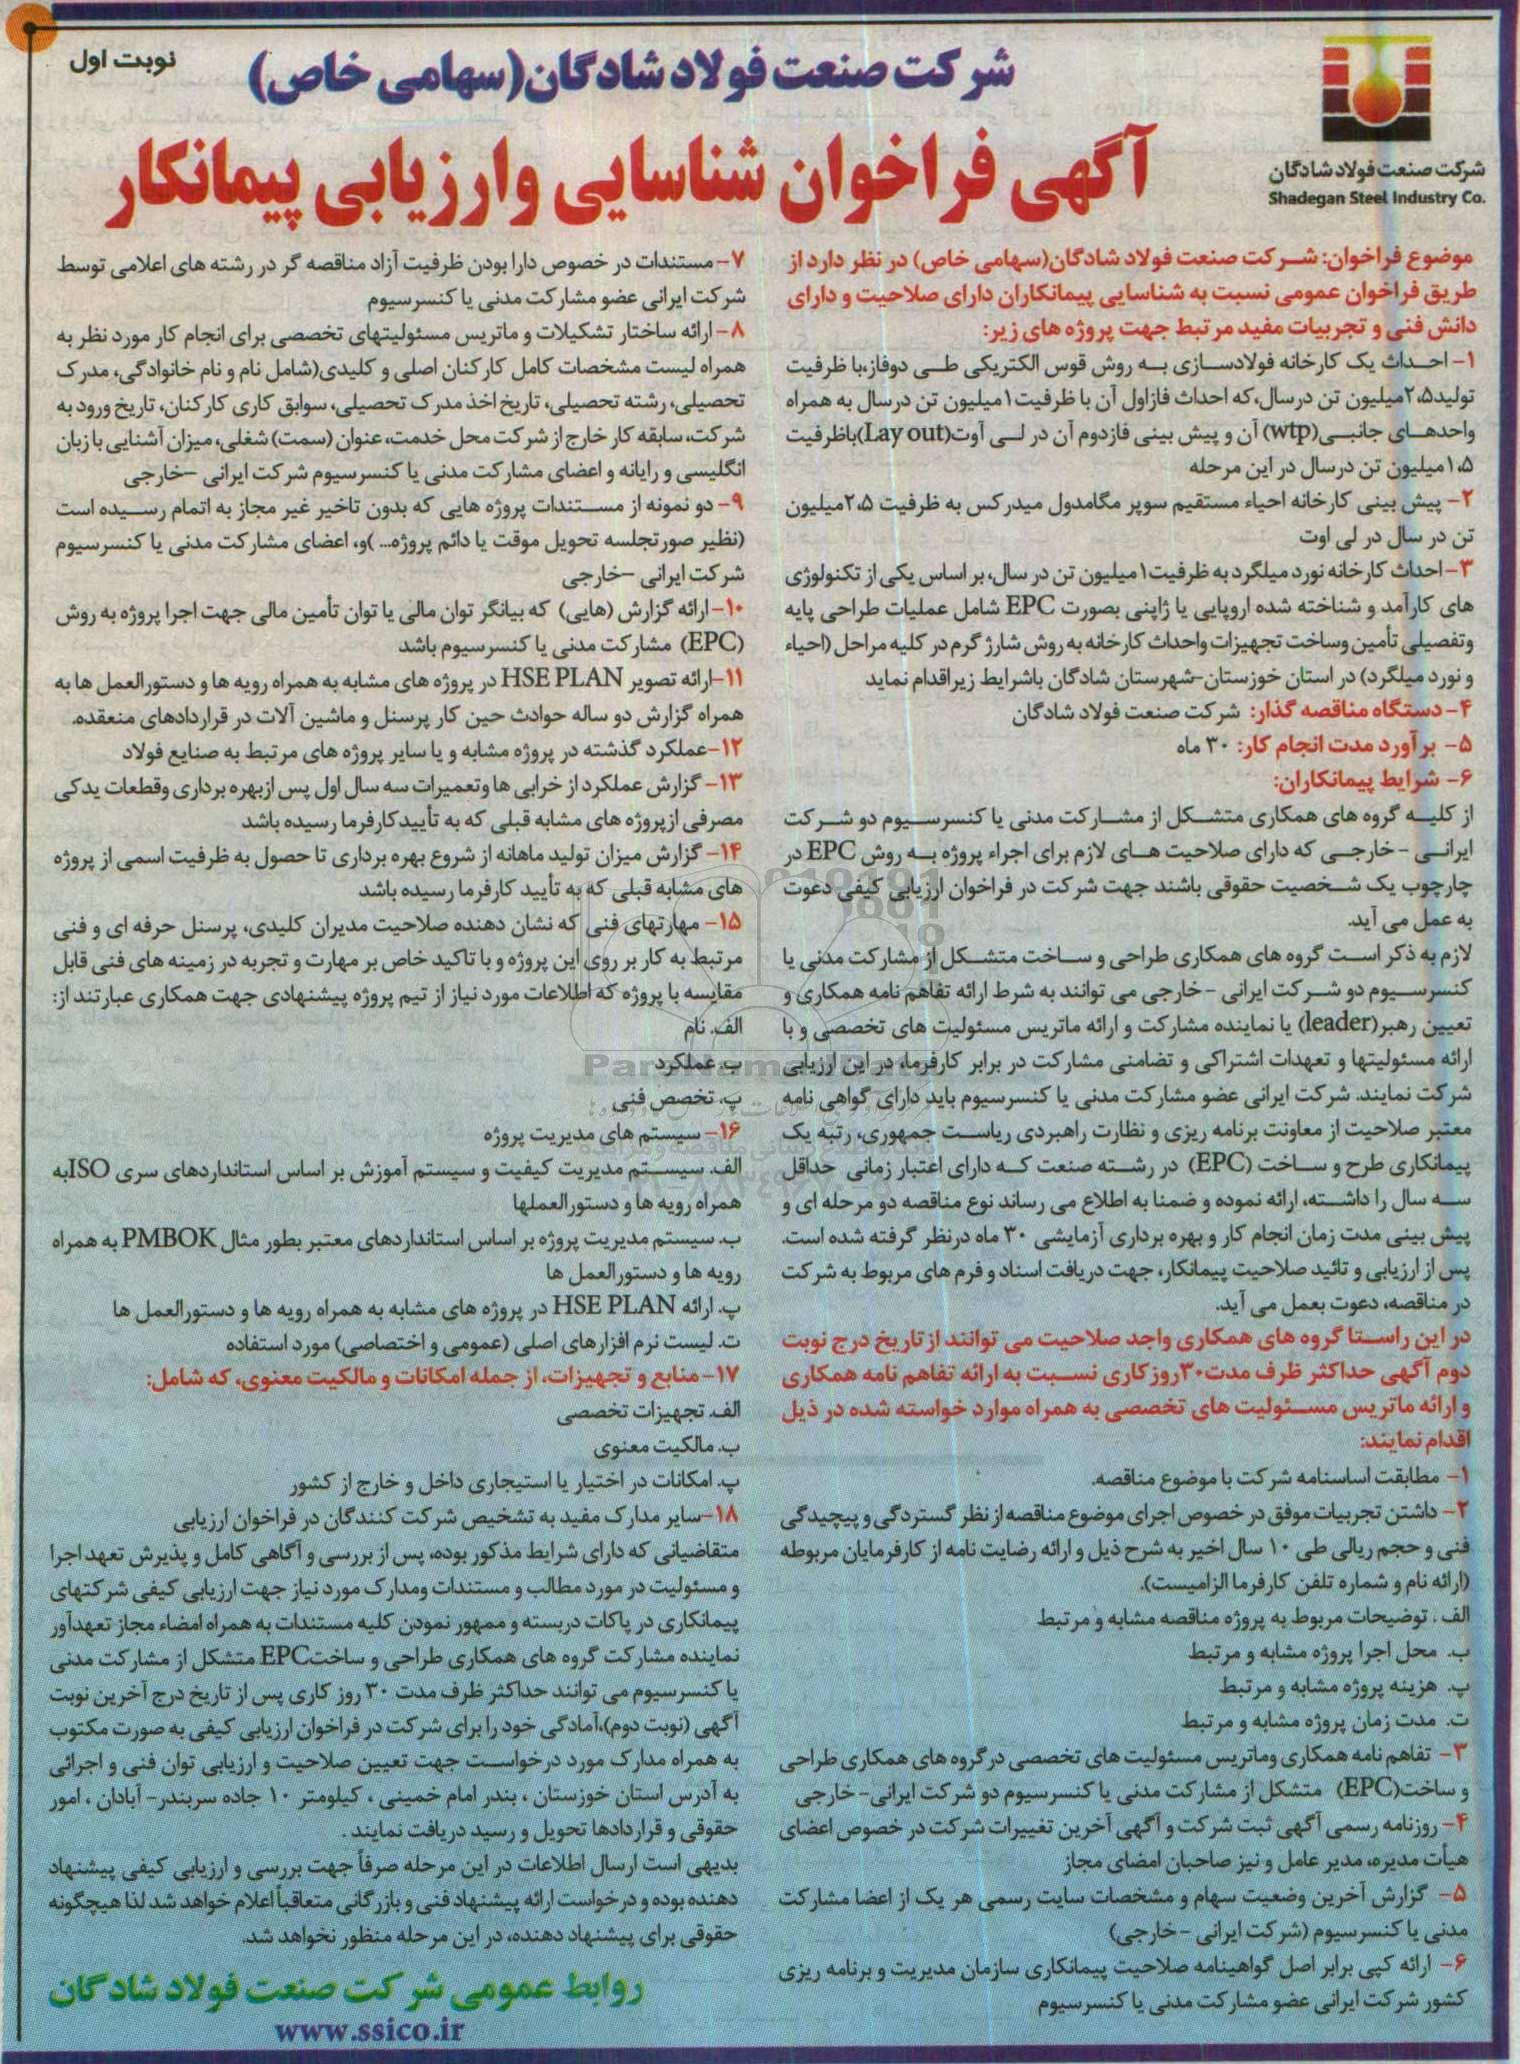 نوبت اول
شرکت صنعت فولاد شادگان(سهامی خاص)
آگهی فراخوان شناسایی وارزیابی پیمانکار
شرکت صنعت فولاد شادگان
Shadegan Steel Industry Co.
موضوع فراخوان: شرکت صنعت فولاد شادگان(سهامی خاص) در نظر دارد از
طریق فراخوان عمومی نسبت به شناسایی پیمانکاران دارای صلاحیت و دارای
دانش فنی و تجربیات مفید مرتبط جهت پروژه های زیر:
۱- احداث یک کارخانه فولادسازی به روش قوس الکتریکی طی دوفاز،با ظرفیت
تولید۲،۵میلیون تن درسال،که احداث فازاول آن با ظرفیت۱میلیون تن درسال به همراه
واحدهای جانبی(wtp) آن و پیش بینی فازدوم آن در لی آوت(Lay out)باظرفیت
۱،۵میلیون تن درسال در این مرحله
۲- پیش بینی کارخانه احیاء مستقیم سوپر مگامدول میدرکس به ظرفیت ۲،۵میلیون
تن در سال در لی اوت
۳- احداث کارخانه نورد میلگرد به ظرفیت۱میلیون تن در سال، بر اساس یکی از تکنولوژی
های کارآمد و شناخته شده اروپایی یا ژاپنی بصورت EPC شامل عملیات طراحی پایه
وتفصیلی تأمین وساخت تجهیزات واحداث کارخانه به روش شارژ گرم در کلیه مراحل (احیاء
و نورد میلگرد) در استان خوزستان-شهرستان شادگان باشرایط زیراقدام نماید
۴- دستگاه مناقصه گذار: شرکت صنعت فولاد شادگان
۵- برآورد مدت انجام کار: ۳۰ ماه
۶- شرایط پیمانکاران:
از کلیه گروه های همکاری متشکل از مشارکت مدنی یا کنسرسیوم دو شرکت
ایرانی - خارجی که دارای صلاحیت های لازم برای اجراء پروژه به روش EPC در
چارچوب یک شخصیت حقوقی باشند جهت شرکت در فراخوان ارزیابی کیفی دعوت
به عمل می آید.
لازم به ذکر است گروه های همکاری طراحی و ساخت متشکل از مشارکت مدنی یا
کنسرسیوم دو شرکت ایرانی - خارجی می توانند به شرط ارائه تفاهم نامه همکاری و
تعیین رهبر(leader) یا نماینده مشارکت و ارائه ماتریس مسئولیت های تخصصی و با
ارائه مسئولیتها و تعهدات اشتراکی و تضامنی مشارکت در برابر کارفرما، در این ارزیابی
شرکت نمایند. شرکت ایرانی عضو مشارکت مدنی یا کنسرسیوم باید دارای گواهی نامه
معتبر صلاحیت از معاونت برنامه ریزی و نظارت راهبردی ریاست جمهوری، رتبه یک
پیمانکاری طرح و ساخت (EPC) در رشته صنعت که دارای اعتبار زمانی حداقل
سه سال را داشته، ارائه نموده و ضمنا به اطلاع می رساند نوع مناقصه دو مرحله ای و
پیش بینی مدت زمان انجام کار و بهره برداری آزمایشی ۳۰ ماه درنظر گرفته شده است.
پس از ارزیابی و تائید صلاحیت پیمانکار، جهت دریافت اسناد و فرم های مربوط به شرکت
در مناقصه، دعوت بعمل می آید.
در این راستا گروه های همکاری واجد صلاحیت می توانند از تاریخ درج نوبت
دوم آگهی حداکثر ظرف مدت۳۰روز کاری نسبت به ارائه تفاهم نامه همکاری
و ارائه ماتریس مسئولیت های تخصصی به همراه موارد خواسته شده در ذیل
اقدام نمایند:
۱- مطابقت اساسنامه شرکت با موضوع مناقصه.
۲- داشتن تجربیات موفق در خصوص اجرای موضوع مناقصه از نظر گستردگی و پیچیدگی
فنی و حجم ریالی طی ۱۰ سال اخیر به شرح ذیل و ارائه رضایت نامه از کارفرمایان مربوطه
(ارائه نام و شماره تلفن کارفرما الزامیست).
الف . توضیحات مربوط به پروژه مناقصه مشابه و مرتبط
ب. محل اجرا پروژه مشابه و مرتبط
پ. هزینه پروژه مشابه و مرتبط
ت. مدت زمان پروژه مشابه و مرتبط
۳- تفاهم نامه همکاری وماتریس مسئولیت های تخصصی درگروه های همکاری طراحی
و ساخت(EPC) متشکل از مشارکت مدنی یا کنسرسیوم دو شرکت ایرانی- خارجی
۴- روزنامه رسمی آگهی ثبت شرکت و آگهی آخرین تغییرات شرکت در خصوص اعضای
هیأت مدیره، مدیر عامل و نیز صاحبان امضای مجاز
۵- گزارش آخرین وضعیت سهام و مشخصات سایت رسمی هر یک از اعضا مشارکت
مدنی یا کنسرسیوم (شرکت ایرانی - خارجی)
۶- ارائه کپی برابر اصل گواهینامه صلاحیت پیمانکاری سازمان مدیریت و برنامه ریزی
کشور شرکت ایرانی عضو مشارکت مدنی یا کنسرسیوم
۷- مستندات در خصوص دارا بودن ظرفیت آزاد مناقصه گر در رشته های اعلامی توسط
شرکت ایرانی عضو مشارکت مدنی یا کنسرسیوم
۸- ارائه ساختار تشکیلات و ماتریس مسئولیتهای تخصصی برای انجام کار مورد نظر به
همراه لیست مشخصات کامل کارکنان اصلی و کلیدی(شامل نام و نام خانوادگی، مدرک
تحصیلی، رشته تحصیلی، تاریخ اخذ مدرک تحصیلی، سوابق کاری کارکنان، تاریخ ورود به
شرکت، سابقه کار خارج از شرکت محل خدمت، عنوان (سمت) شغلی، میزان آشنایی با زبان
انگلیسی و رایانه و اعضای مشارکت مدنی یا کنسرسیوم شرکت ایرانی –خارجی
۹- دو نمونه از مستندات پروژه هایی که بدون تاخیر غیر مجاز به اتمام رسیده است
(نظیر صورتجلسه تحویل موقت یا دائم پروژه... )و، اعضای مشارکت مدنی یا کنسرسیوم
شرکت ایرانی –خارجی
۱۰- ارائه گزارش (هایی) که بیانگر توان مالی یا توان تأمین مالی جهت اجرا پروژه به روش
(EPC) مشارکت مدنی یا کنسرسیوم باشد
۱۱-ارائه تصویر HSE PLAN در پروژه های مشابه به همراه رویه ها و دستورالعمل ها به
همراه گزارش دو ساله حوادث حین کار پرسنل و ماشین آلات در قراردادهای منعقده.
۱۲-عملکرد گذشته در پروژه مشابه و یا سایر پروژه های مرتبط به صنایع فولاد
۱۳- گزارش عملکرد از خرابی ها وتعمیرات سه سال اول پس ازبهره برداری وقطعات یدکی
مصرفی ازپروژه های مشابه قبلی که به تأیید کارفرما رسیده باشد
۱۴- گزارش میزان تولید ماهانه از شروع بهره برداری تا حصول به ظرفیت اسمی از پروژه
های مشابه قبلی که به تأیید کارفرما رسیده باشد
۱۵- مهارتهای فنی که نشان دهنده صلاحیت مدیران کلیدی، پرسنل حرفه ای و فنی
مرتبط به کار بر روی این پروژه و با تاکید خاص بر مهارت و تجربه در زمینه های فنی قابل
مقایسه با پروژه که اطلاعات مورد نیاز از تیم پروژه پیشنهادی جهت همکاری عبارتند از:
الف. نام
ب. عملکرد
پ. تخصص فنی
۱۶- سیستم های مدیریت پروژه
الف. سیستم مدیریت کیفیت و سیستم آموزش بر اساس استانداردهای سری ISOبه
همراه رویه ها و دستورالعملها
ب. سیستم مدیریت پروژه بر اساس استانداردهای معتبر بطور مثال PMBOK به همراه
رویه ها و دستورالعمل ها
پ. ارائه HSE PLAN در پروژه های مشابه به همراه رویه ها و دستورالعمل ها
ت. لیست نرم افزارهای اصلی (عمومی و اختصاصی) مورد استفاده
۱۷- منابع و تجهیزات، از جمله امکانات و مالکیت معنوی، که شامل:
الف. تجهیزات تخصصی
ب. مالکیت معنوی
پ. امکانات در اختیار یا استیجاری داخل و خارج از کشور
۱۸-سایر مدارک مفید به تشخیص شرکت کنندگان در فراخوان ارزیابی
متقاضیانی که دارای شرایط مذکور بوده، پس از بررسی و آگاهی کامل و پذیرش تعهد اجرا
و مسئولیت در مورد مطالب و مستندات ومدارک مورد نیاز جهت ارزیابی کیفی شرکتهای
پیمانکاری در پاکات دربسته و ممهور نمودن کلیه مستندات به همراه امضاء مجاز تعهدآور
نماینده مشارکت گروه های همکاری طراحی و ساختEPC متشکل از مشارکت مدنی
یا کنسرسیوم می توانند حداکثر ظرف مدت ۳۰ روز کاری پس از تاریخ درج آخرین نوبت
آگهی (نوبت دوم)،آمادگی خود را برای شرکت در فراخوان ارزیابی کیفی به صورت مکتوب
به همراه مدارک مورد درخواست جهت تعیین صلاحیت و ارزیابی توان فنی و اجرائی
به آدرس استان خوزستان ، بندر امام خمینی ، کیلومتر ۱۰ جاده سربندر- آبادان ، امور
حقوقی و قراردادها تحویل و رسید دریافت نمایند .
بدیهی است ارسال اطلاعات در این مرحله صرفاً جهت بررسی و ارزیابی کیفی پیشنهاد
دهنده بوده و درخواست ارائه پیشنهاد فنی و بازرگانی متعاقباً اعلام خواهد شد لذا هیچگونه
حقوقی برای پیشنهاد دهنده، در این مرحله منظور نخواهد شد.
روابط عمومی شرکت صنعت فولاد شادگان
www.ssico.ir